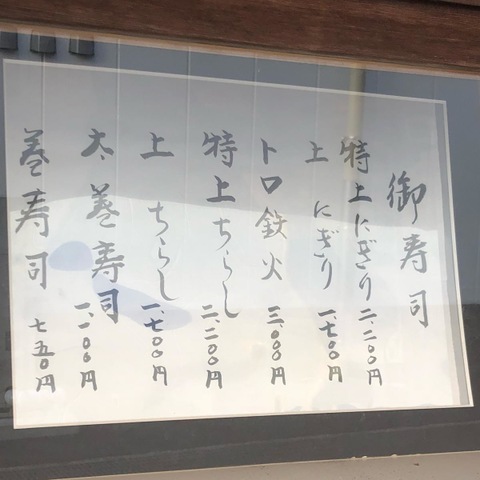 御寿司
特上にぎり 二、二〇〇円
上 にぎり 一、七〇〇円
トロ鉄火 三、〇〇〇円
特上ちらし 二、二〇〇円
上 ちらし 一、七〇〇円
太巻寿司 一、一〇〇円
巻寿司 七五〇円